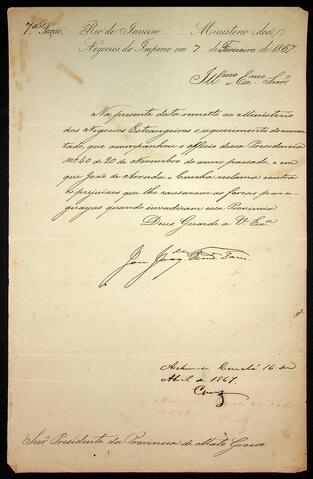 7ª Secção. Rio de Janeiro Ministerio dos
Negocios do Imperio em 7 de Fevereiro de 1867
Illmo e Exmo Snr.
Na presente data remetto ao Ministerio
dos Negocios Estrangeiros o requerimento documen-
tado, que acompanhou o officio dessa Presidencia
nº 40 de 20 de Novembro do anno passado, e em
que João de Arruda e Cunha reclama contra
os prejuizos que lhe causaram as forças para-
guayas quando invadiram essa Provincia
Deus Guarde a V. Exª
Archive-se Cuiabá 16 de
Abril de 1867.
Snr. Presidente da Provincia de Mato Grosso